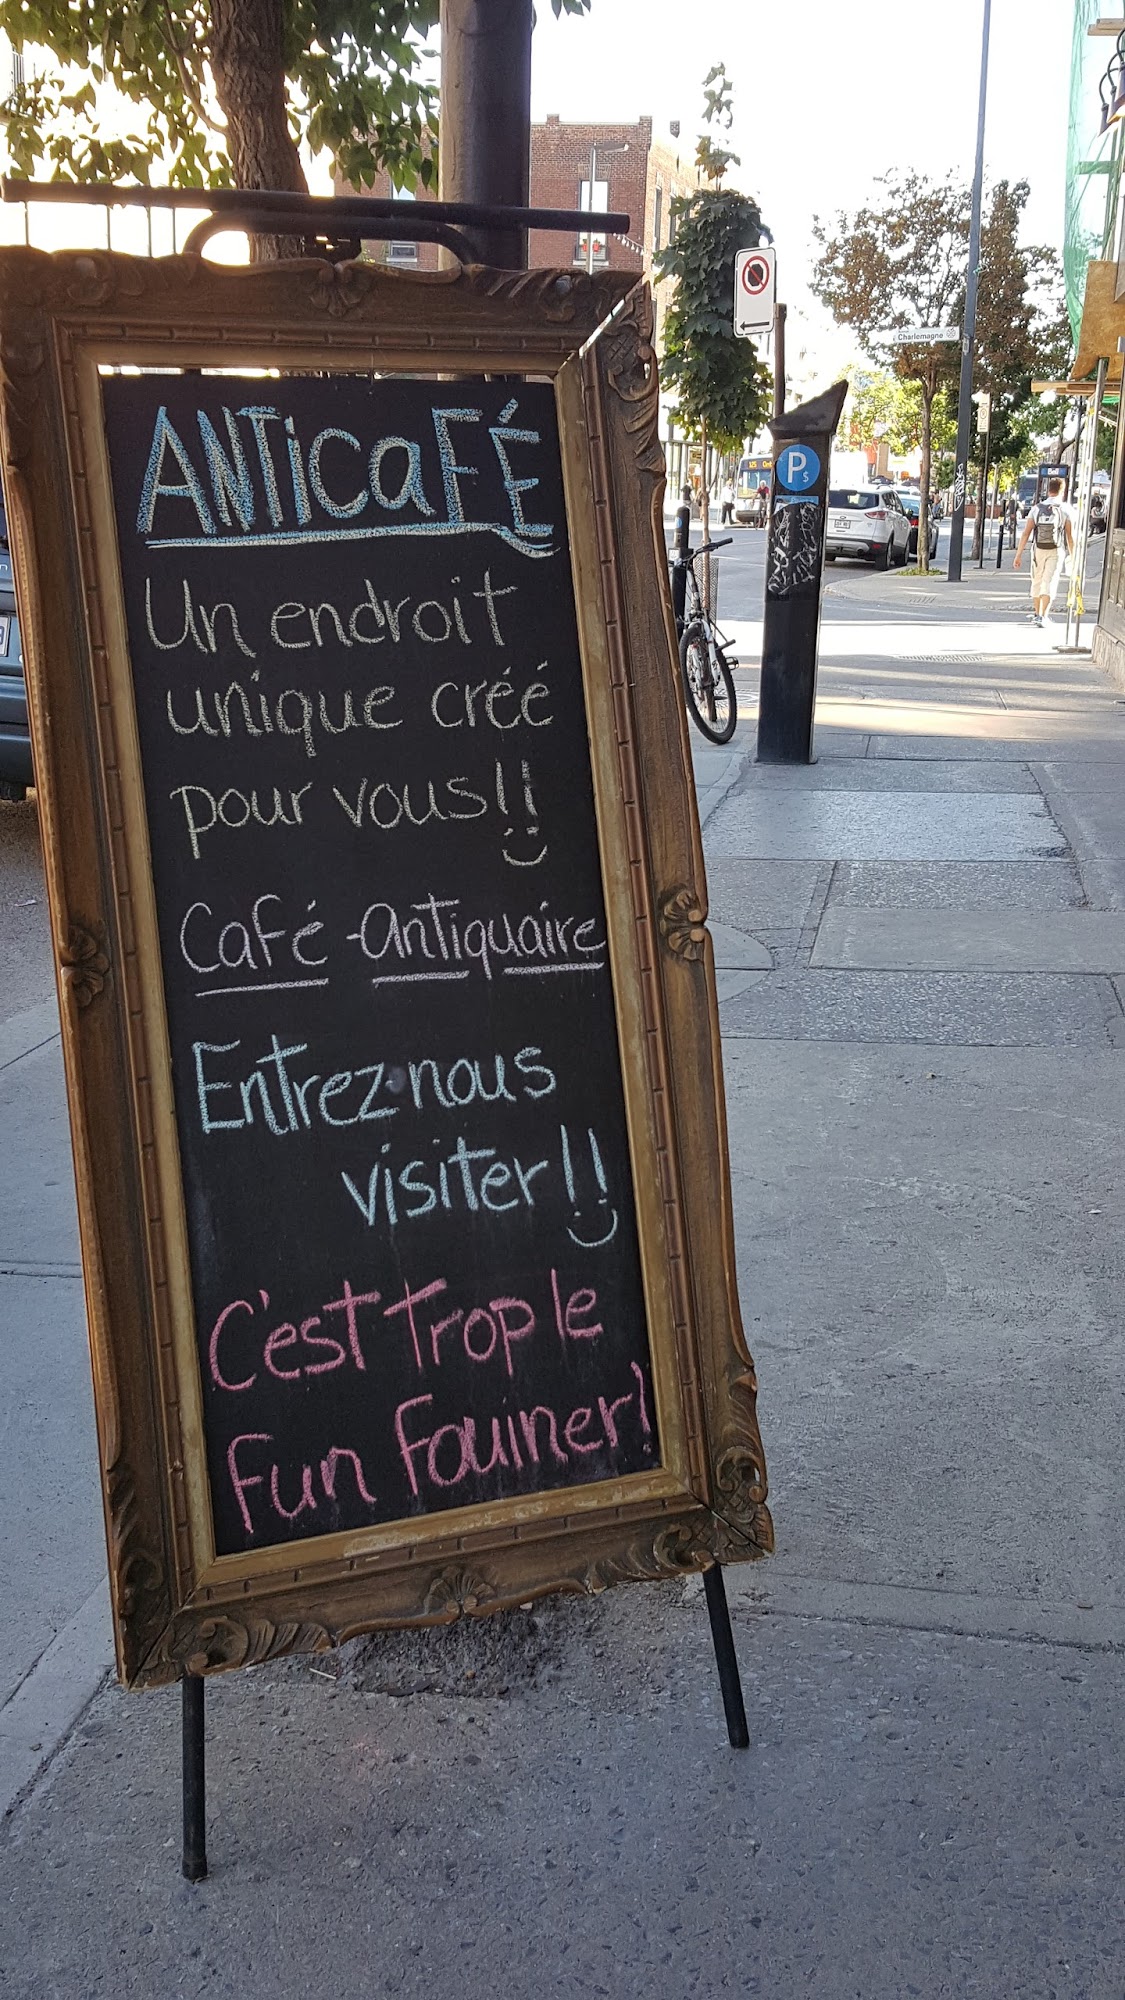 ANTICAFÉ
Un endroit
unique créé
pour vous!!
Café-Antiquaire
Entrez-nous
visiter!!
C'est Trop le
Fun Fouiner!
Charlemagne
P
$
125
Bell